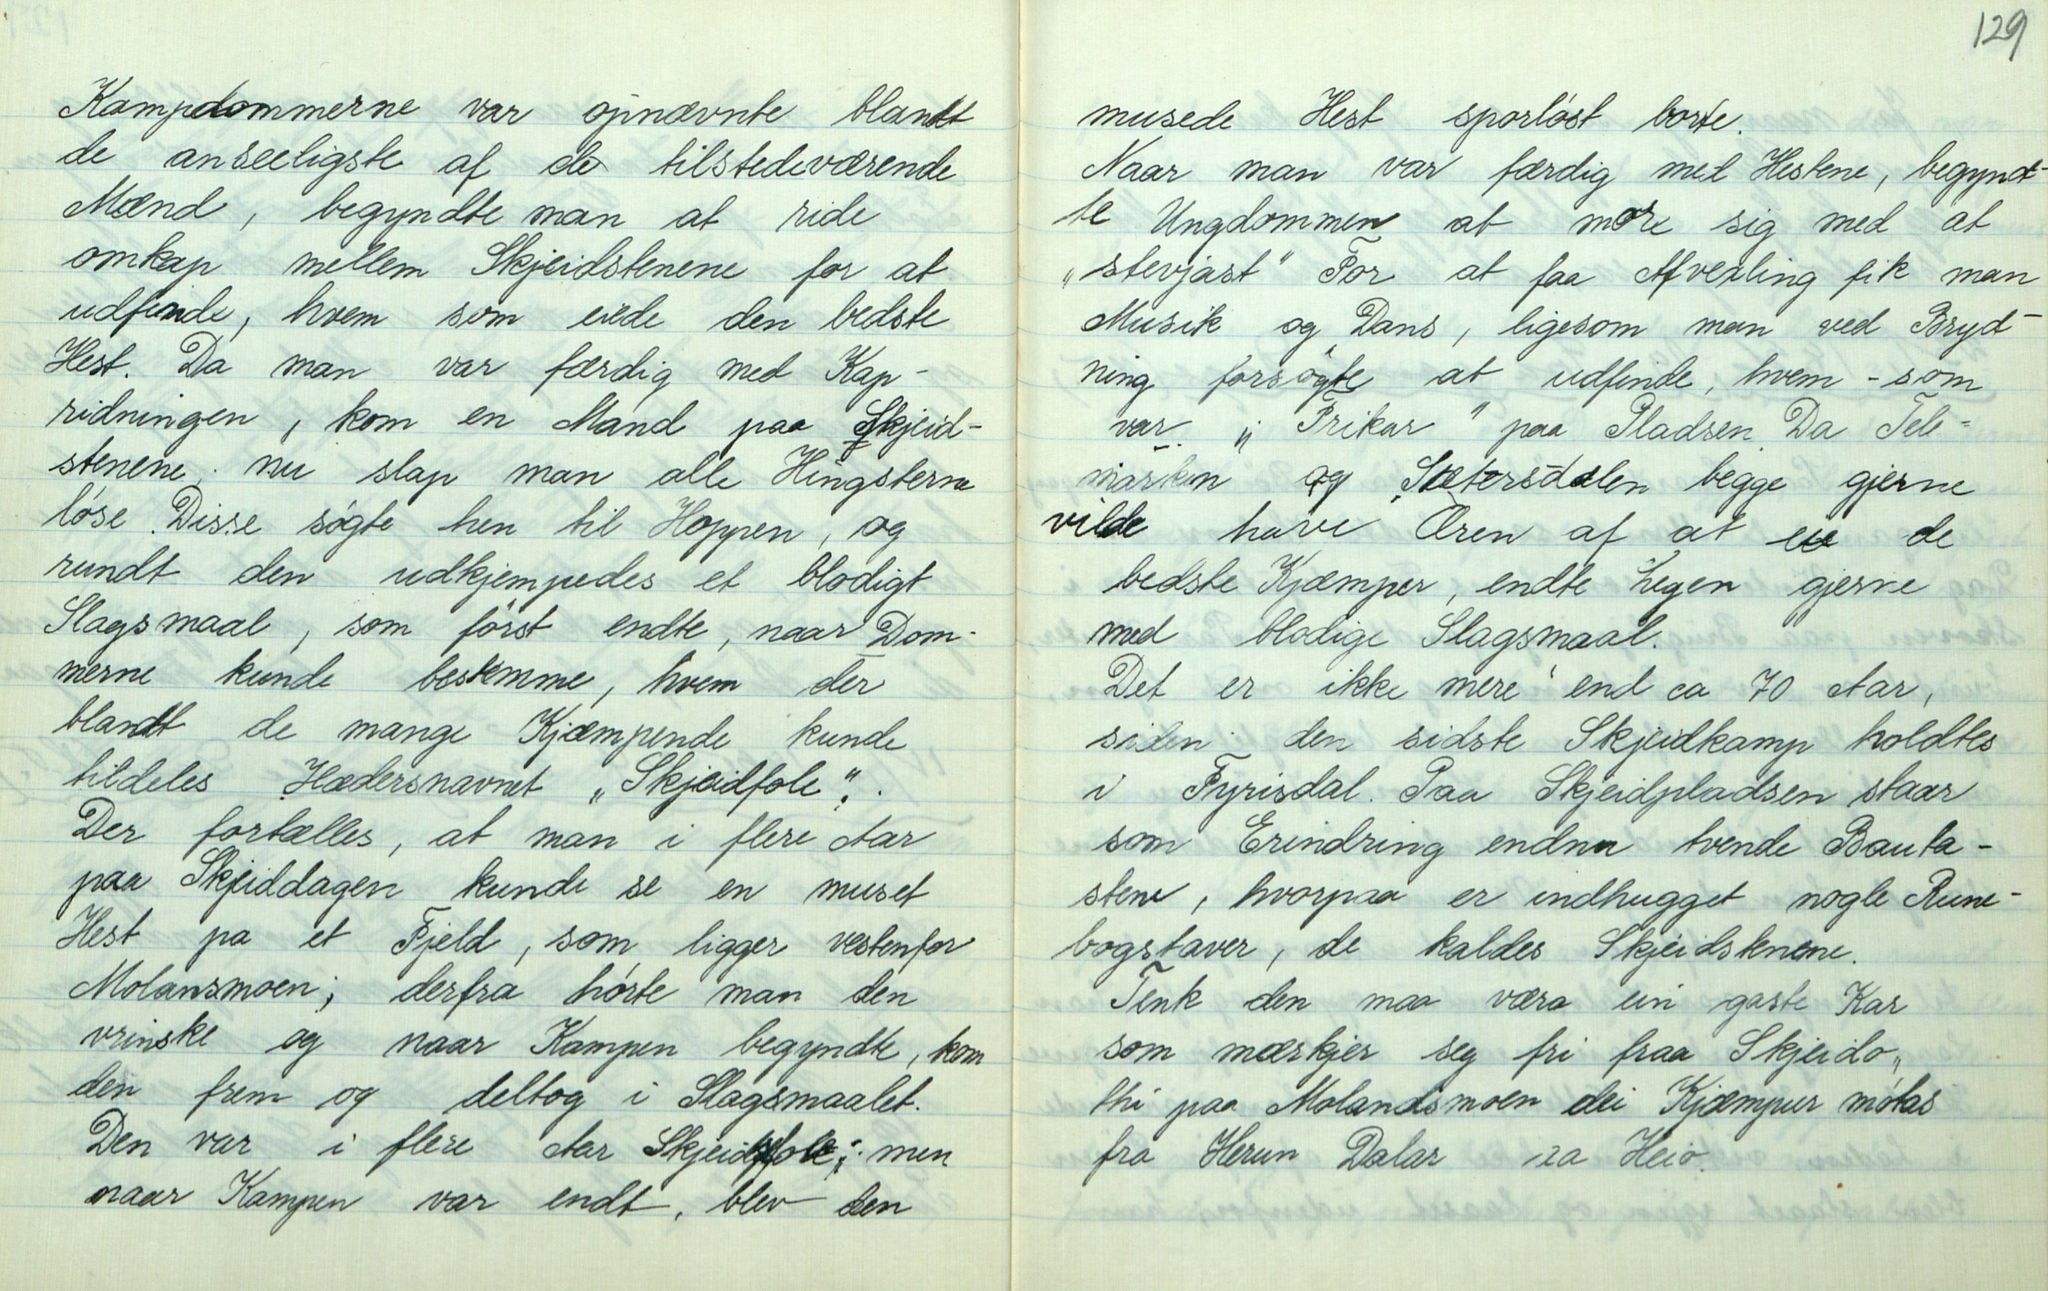 Kampdommerne var opnævnte blandt
de anseeligste af de tilstedeværende
Mænd, begyndte man at ride
omkap mellem Skjeidstenene for at
udfinde, hvem som eiede den bedste
Hest. Da man var færdig med Kap-
ridningen, kom en Mand paa Skjeid-
stenene. nu slap man alle Hingsterne
løse. Disse søgte hen til Hoppen, og
rundt den udkjempedes et blodigt
Slagsmaal, som først endte, naar Dom-
merne kunde bestemme, hvem der
blandt de mange Kjæmpende kunde
tildeles Hædersnavnet „Skjeidfole“.
Der fortælles, at man i flere Aar
paa Skjeiddagen kunde se en muset
Hest pa et Fjeld, som ligger vestenfor
Molansmoen; derfra hørte man den
vrinske og naar Kampen begyndte, kom
den frem og deltog i Slagsmaalet.
Den var i flere Aar Skjeidfole; men
naar Kampen var endt, blev den
129
musede Hest sporløst borte.
Naar man var færdig med Hestene, begynd-
te Ungdommen at more sig med at
„stevjast“ For at faa Afvexling fik man
Musik og Dans, ligesom man ved Bryd-
ning forsøgte at udfinde, hvem - som
var „Frikar“ paa Pladsen. Da Tele-
marken og Sætersdalen begge gjerne
vilde have Æren af at eie de
bedste Kjæmper, endte Legen gjerne
med blodige Slagsmaal.
Det er ikke mere end ca 70 Aar,
siden den sidste Skjeidkamp holdtes
i Fyrisdal. Paa Skjeidpladsen staar
som Erindring endnu tvende Bauta-
stene, hvorpaa er indhugget nogle Rune-
bogstaver, de kaldes Skjeidstenene.
Tenk den maa væra ein gaste Kar
som mærkjer seg fri fraa Skjeido,
thi paa Molandsmoen dei Kjæmpur møtas
fra Herun Dalar aa Heio.